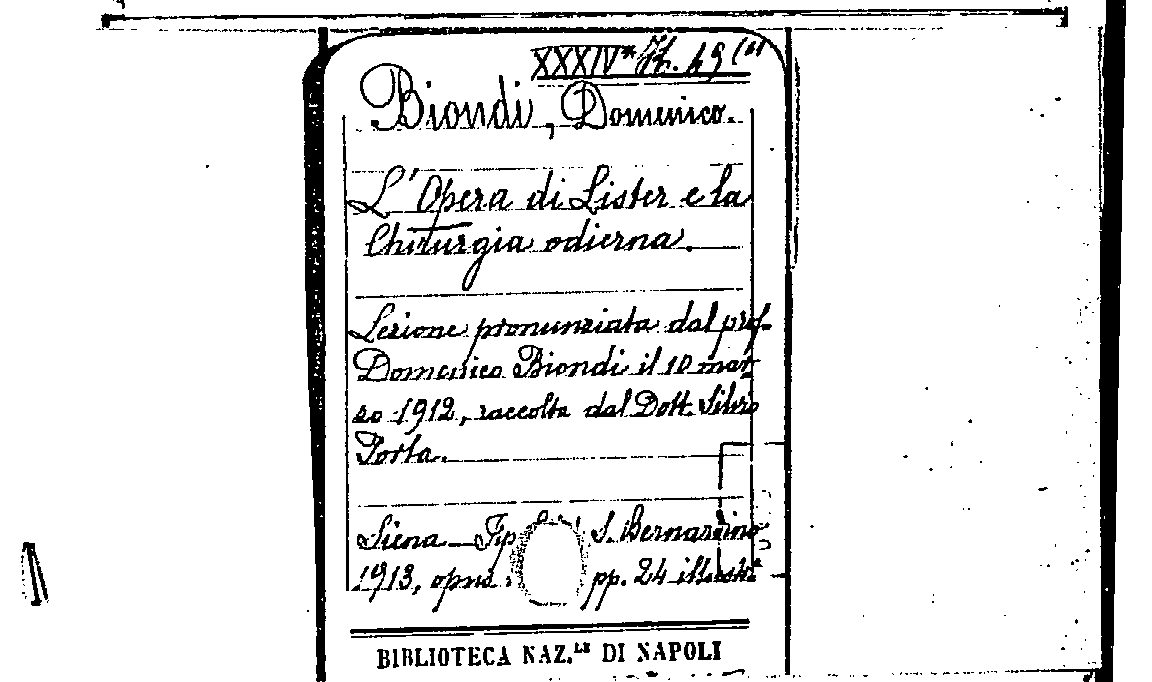 XXXIV* H. 49 (11
Biondi, Domenico.
L'Opera di Lister e la
Chirurgia odierna.
Lezione pronunziata dal prof.
Domenico Biondi il 10 mar-
zo 1912, raccolta dal Dott. Silvio
Porta.
Siena Tip. S. Bernardino
1913, opus. pp. 24 illustr.
BIBLIOTECA NAZ.LE DI NAPOLI